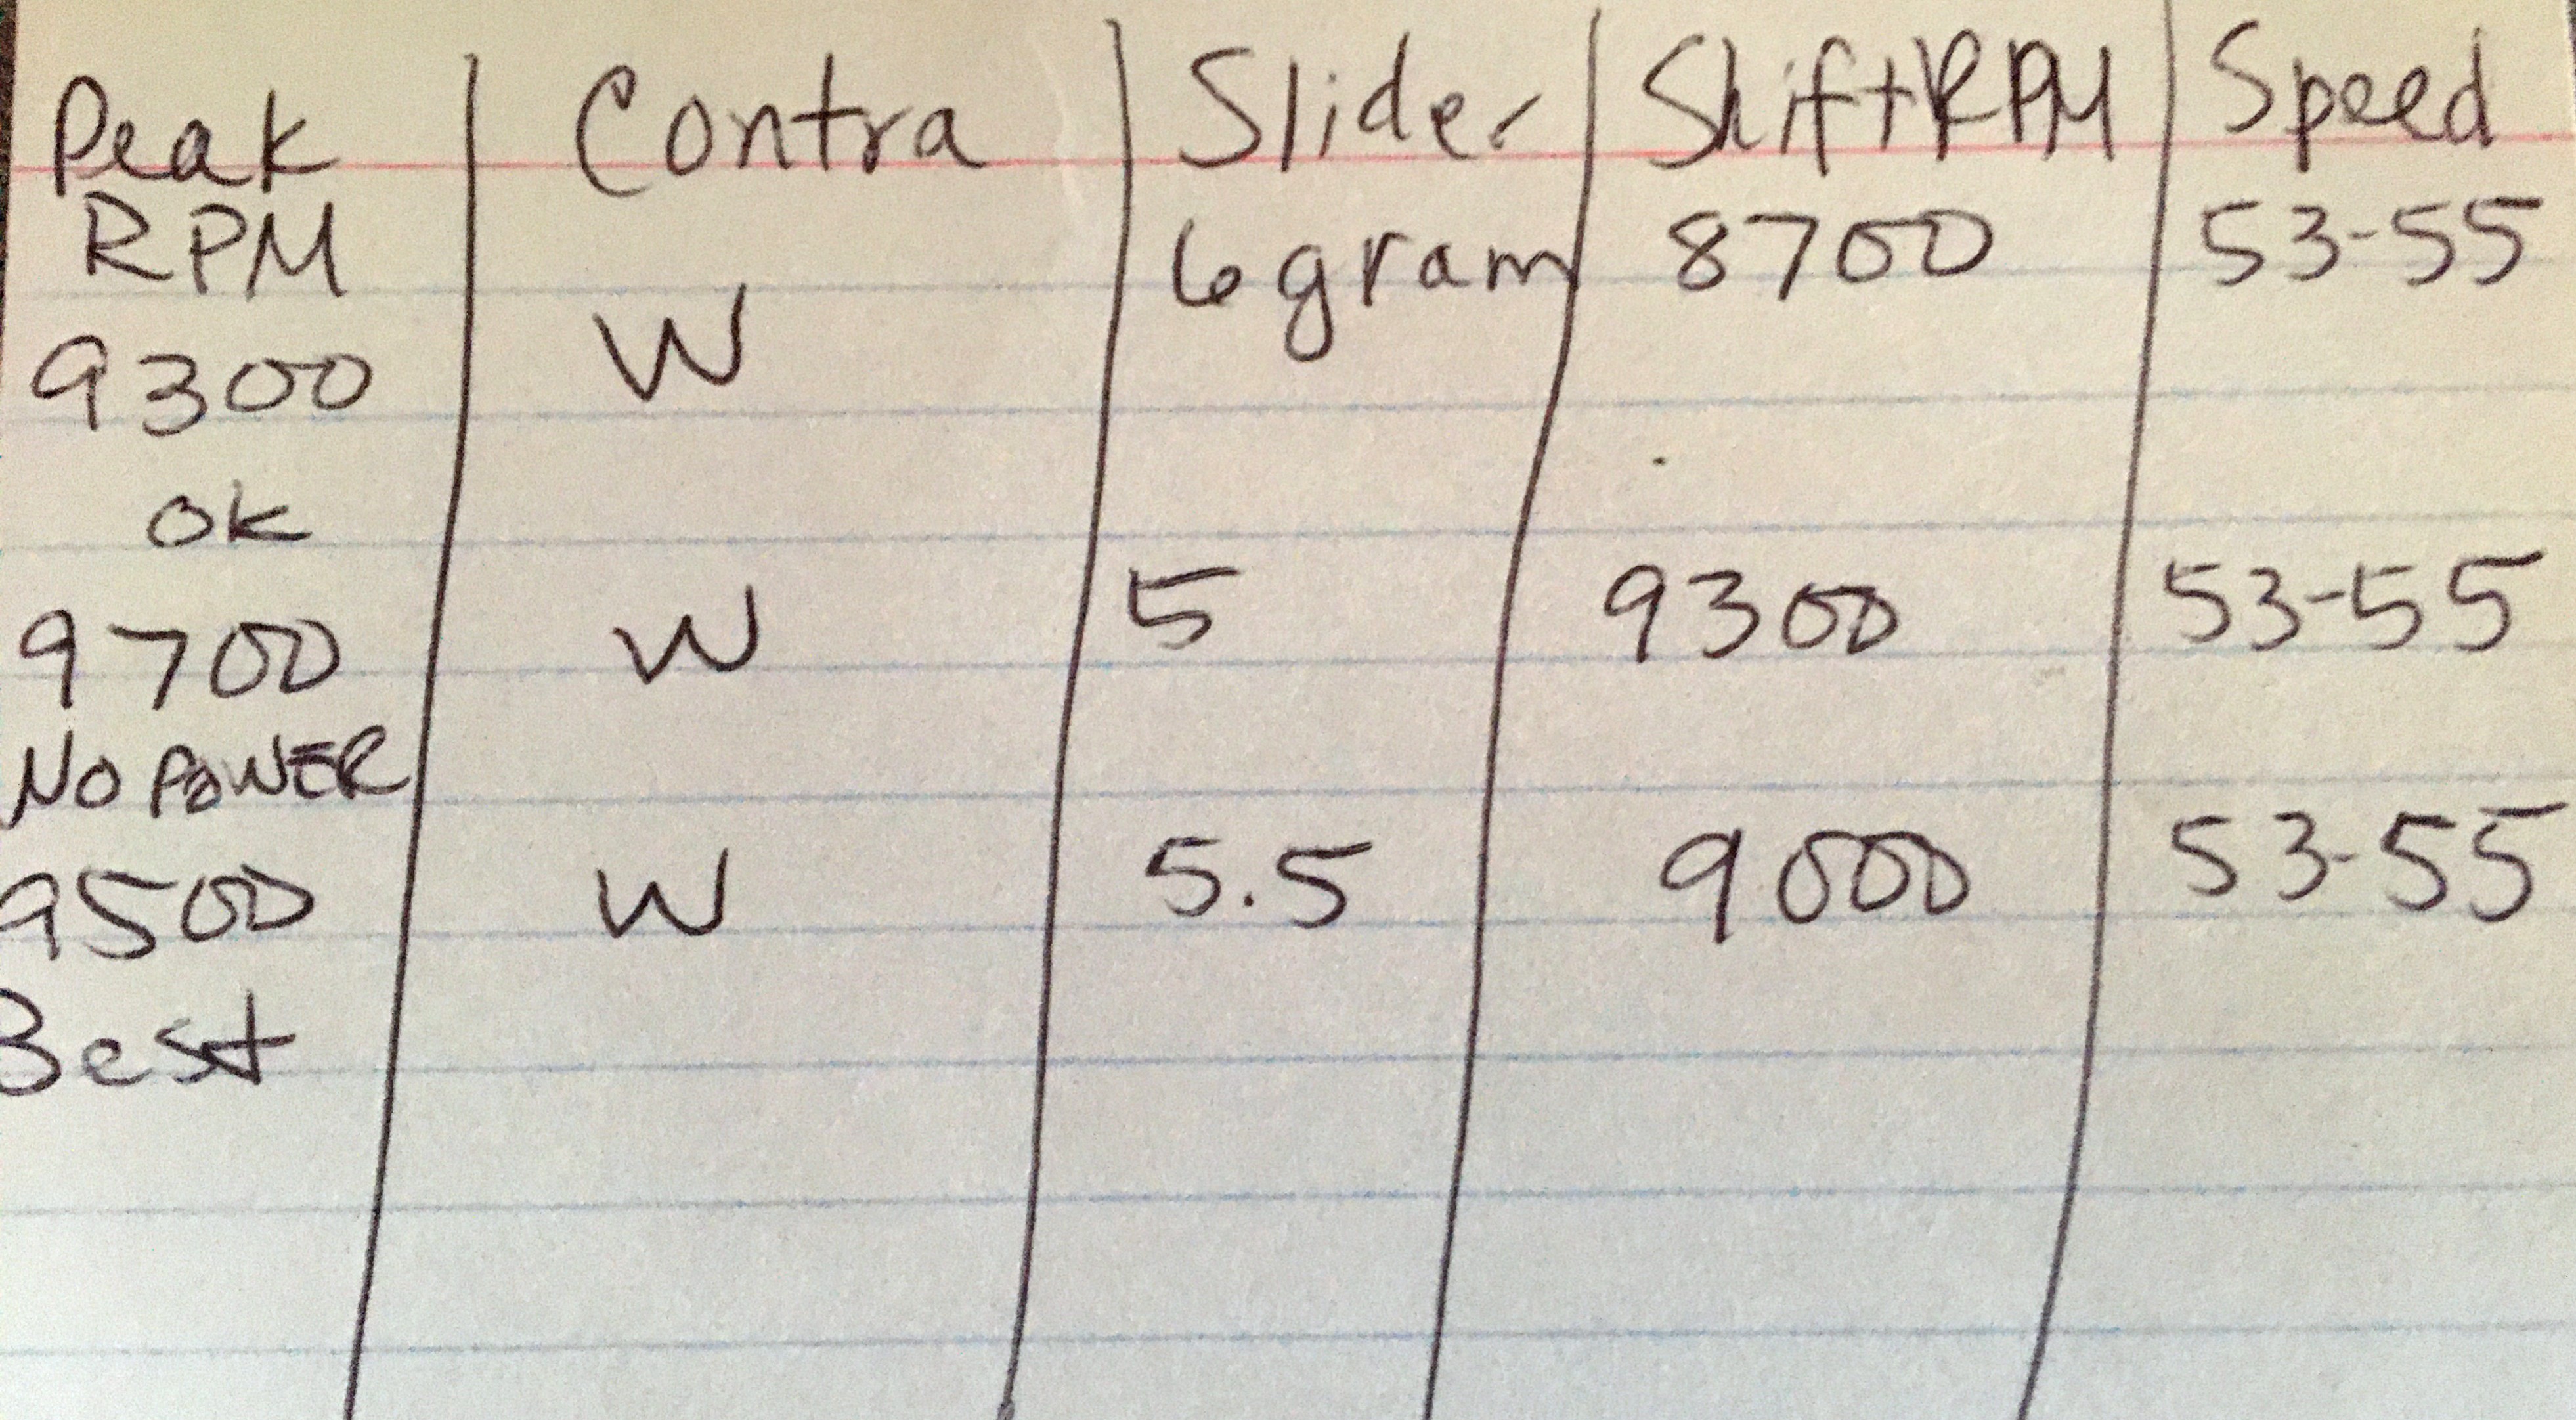 Peak Contra Slider Shift RPM Speed
RPM 6 gram 8700 53-55
9300 W
OK
9700 W 5 9300 53-55
NO POWER
9500 W 5.5 9000 53-55
Best